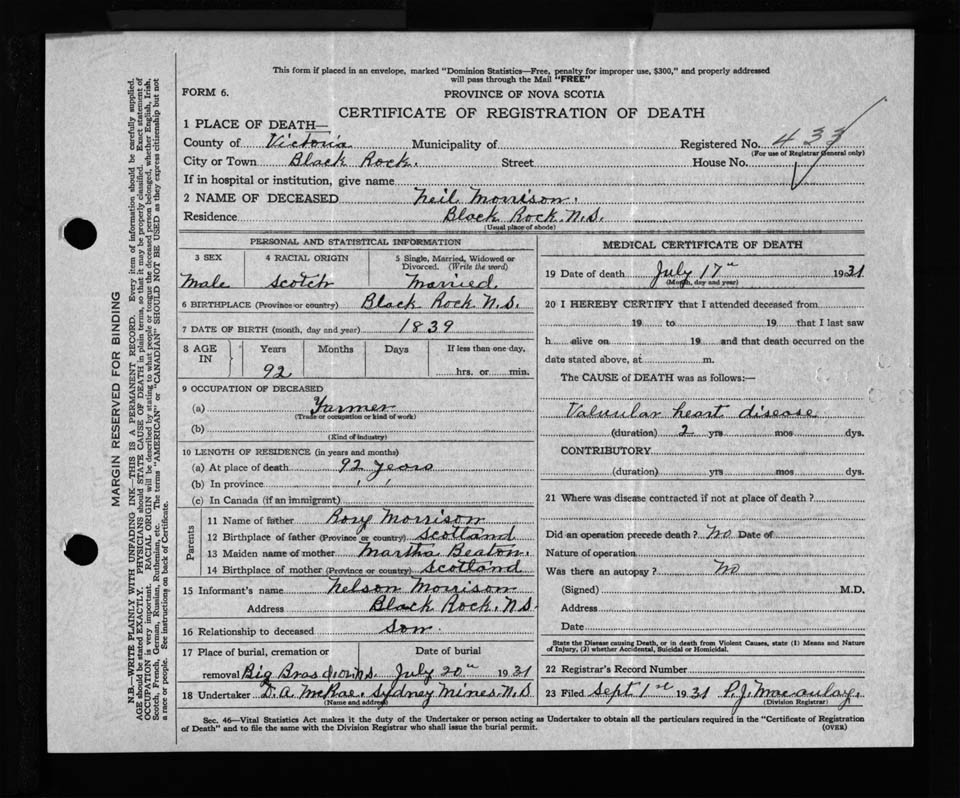 This form if placed in an envelope, marked "Dominion Statistics—Free, penalty for improper use, $300," and properly addressed
will pass through the Mail "FREE"
FORM 6.
PROVINCE OF NOVA SCOTIA
CERTIFICATE OF REGISTRATION OF DEATH
1 PLACE OF DEATH—
County of Victoria Municipality of Registered No. 433
(For use of Registrar General only)
City or Town Black Rock. Street House No.
If in hospital or institution, give name
2 NAME OF DECEASED Neil Morrison.
Residence Black Rock. N.S.
(Usual place of abode)
PERSONAL AND STATISTICAL INFORMATION
3 SEX 4 RACIAL ORIGIN 5 Single, Married, Widowed or
Divorced. (Write the word)
Male Scotch Married.
6 BIRTHPLACE (Province or country) Black Rock N.S.
7 DATE OF BIRTH (month, day and year) 1839
8 AGE IN Years Months Days If less than one day,
92 hrs. or min.
9 OCCUPATION OF DECEASED
(a) Farmer
(Trade or occupation or kind of work)
(b)
(Kind of industry)
10 LENGTH OF RESIDENCE (in years and months)
(a) At place of death 92 years
(b) In province ' '
(c) In Canada (if an immigrant)
Parents
11 Name of father Rory Morrison
12 Birthplace of father (Province or country) Scotland
13 Maiden name of mother Martha Beaton.
14 Birthplace of mother (Province or country) Scotland
15 Informant's name Nelson Morrison
Address Black Rock. N.S.
16 Relationship to deceased Son.
17 Place of burial, cremation or Date of burial
removal Big Bras d'or N.S. July 20th 1931
18 Undertaker D. A. McRae. Sydney Mines. N.S
(Name and address)
MEDICAL CERTIFICATE OF DEATH
19 Date of death July 17th 1931
(Month, day and year)
20 I HEREBY CERTIFY that I attended deceased from
19 to 19 that I last saw
h alive on 19 and that death occurred on the
date stated above, at m.
The CAUSE of DEATH was as follows:—
Valvular heart disease
(duration) 2 yrs mos dys.
CONTRIBUTORY
(duration) yrs mos dys.
21 Where was disease contracted if not at place of death ?
Did an operation precede death ? No Date of
Nature of operation
Was there an autopsy ? No
(Signed) M.D.
Address
Date
State the Disease causing Death, or in death from Violent Causes, state (1) Means and Nature
of Injury, (2) whether Accidental, Suicidal or Homicidal.
22 Registrar's Record Number
23 Filed Sept 1st 1931 P. J. Macaulay.
(Division Registrar)
Sec. 46—Vital Statistics Act makes it the duty of the Undertaker or person acting as Undertaker to obtain all the particulars required in the "Certificate of Registration
of Death" and to file the same with the Division Registrar who shall issue the burial permit. (OVER)
MARGIN RESERVED FOR BINDING
N.B.—WRITE PLAINLY WITH UNFADING INK—THIS IS A PERMANENT RECORD. Every item of information should be carefully supplied.
AGE should be stated EXACTLY. PHYSICIANS should STATE CAUSE OF DEATH in plain terms, so that it may be properly classified. Exact statement of
OCCUPATION is very important. RACIAL ORIGIN will be described by stating to what people or tongue the deceased person belonged, whether English, Irish,
Scotch, French, German, Russian, Ruthenian, etc. The terms "AMERICAN" or "CANADIAN" SHOULD NOT BE USED as they express citizenship but not
a race or people. See instructions on back of Certificate.